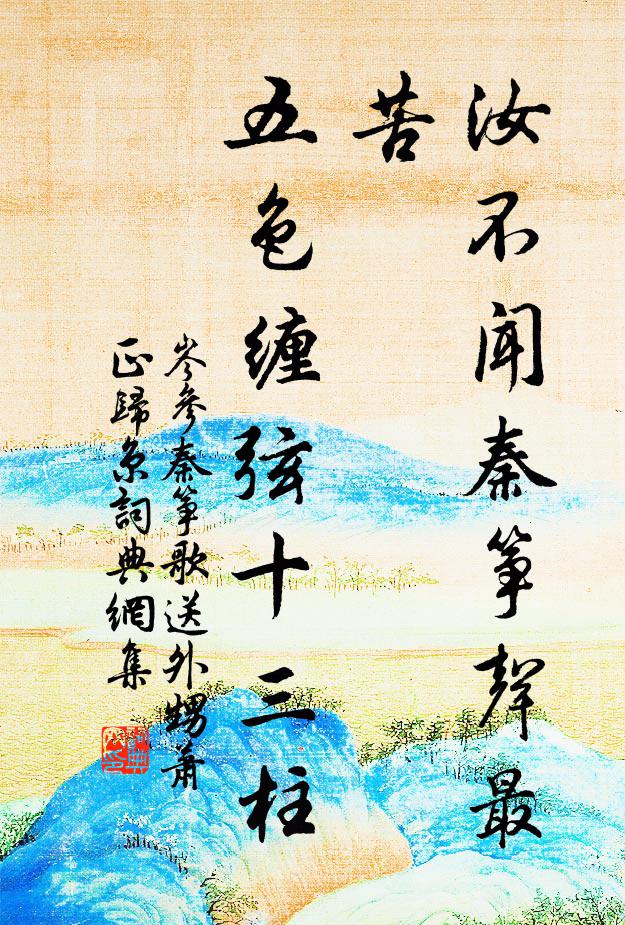 汝不闻秦筝聲最
苦
五色缠弦十三柱
岑參秦筝歌送外甥萧
正歸京詞典網集